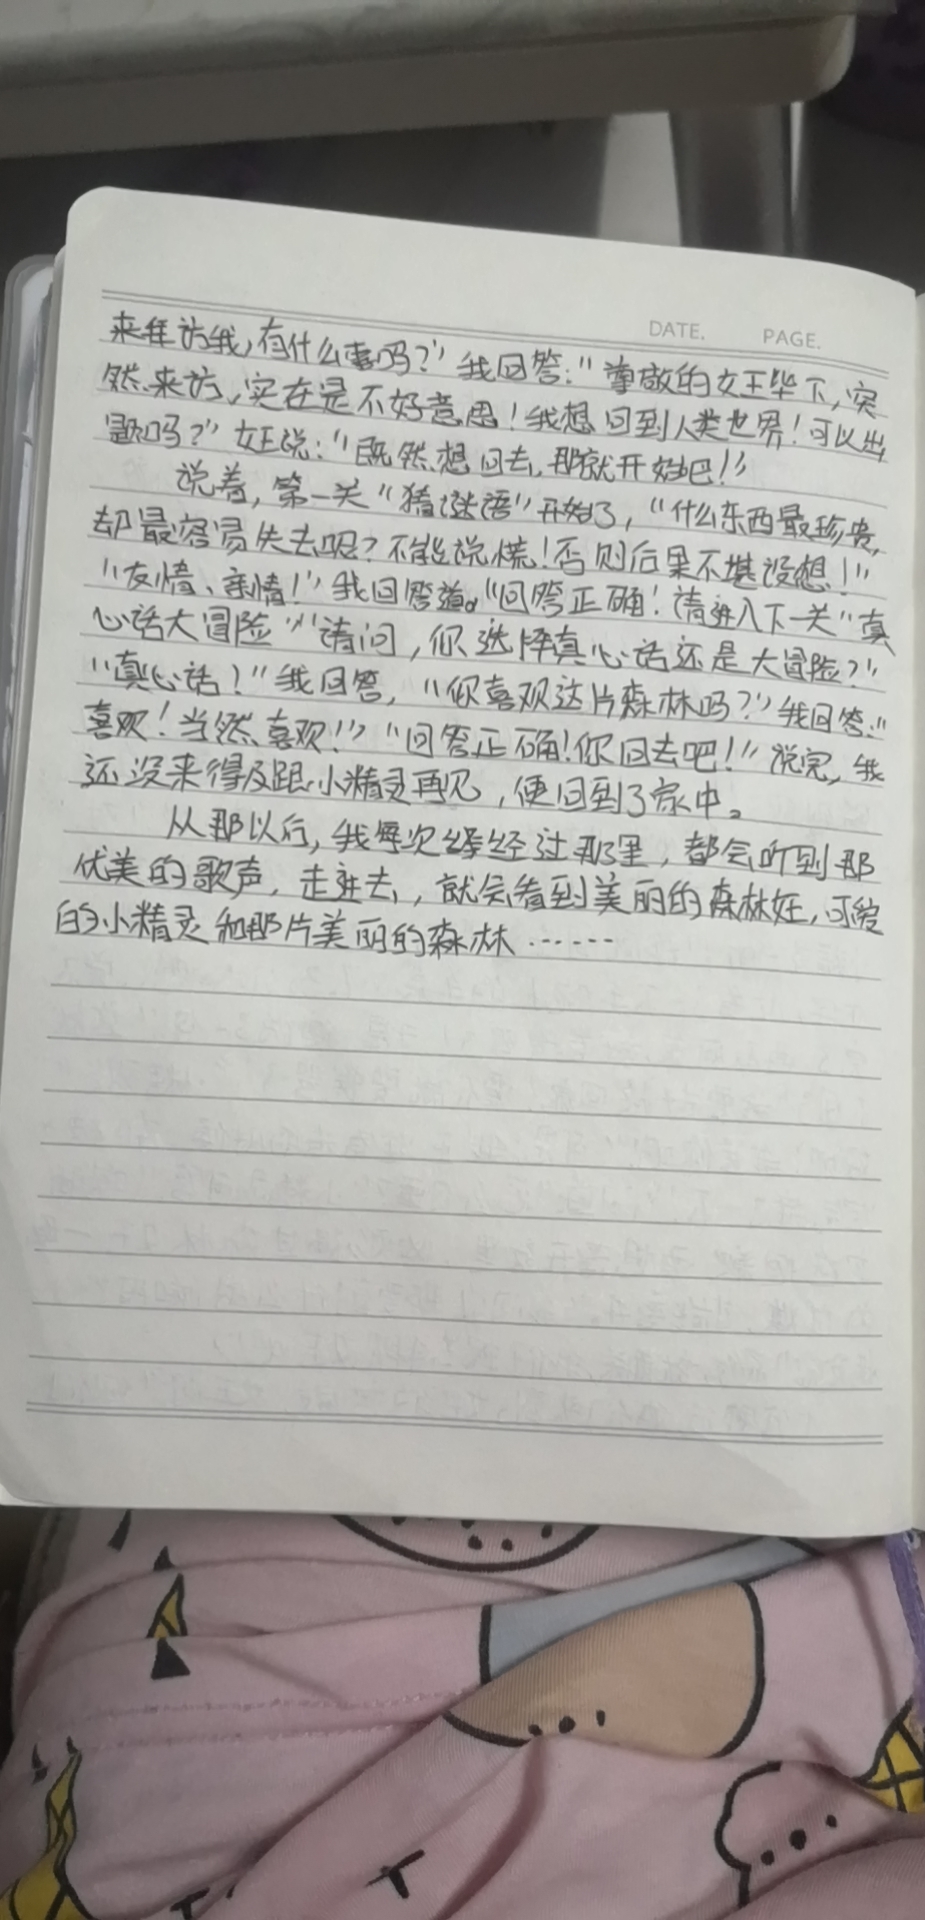 DATE. PAGE.
来拜访我,有什么事吗?”我回答:“尊敬的女王毕下,突
然来访,实在是不好意思!我想回到人类世界!可以出
题吗?”女王说:“既然想回去,那就开始吧!”
说着,第一关“猜谜语”开始了,“什么东西最珍贵,
却最容易失去呢?不能说慌!否则后果不堪设想!”
“友情、亲情!”我回答道。“回答正确!请进入下一关“真
心话大冒险”“请问,你选择真心话还是大冒险?”
“真心话!”我回答,“你喜欢这片森林吗?”我回答:“
喜欢!当然喜欢!”“回答正确!你回去吧!”说完,我
还没来得及跟小精灵再见,便回到了家中。
从那以后,我每次经过那里,都会听到那
优美的歌声,走进去,就会看到美丽的森林妖,可爱
的小精灵和那片美丽的森林……